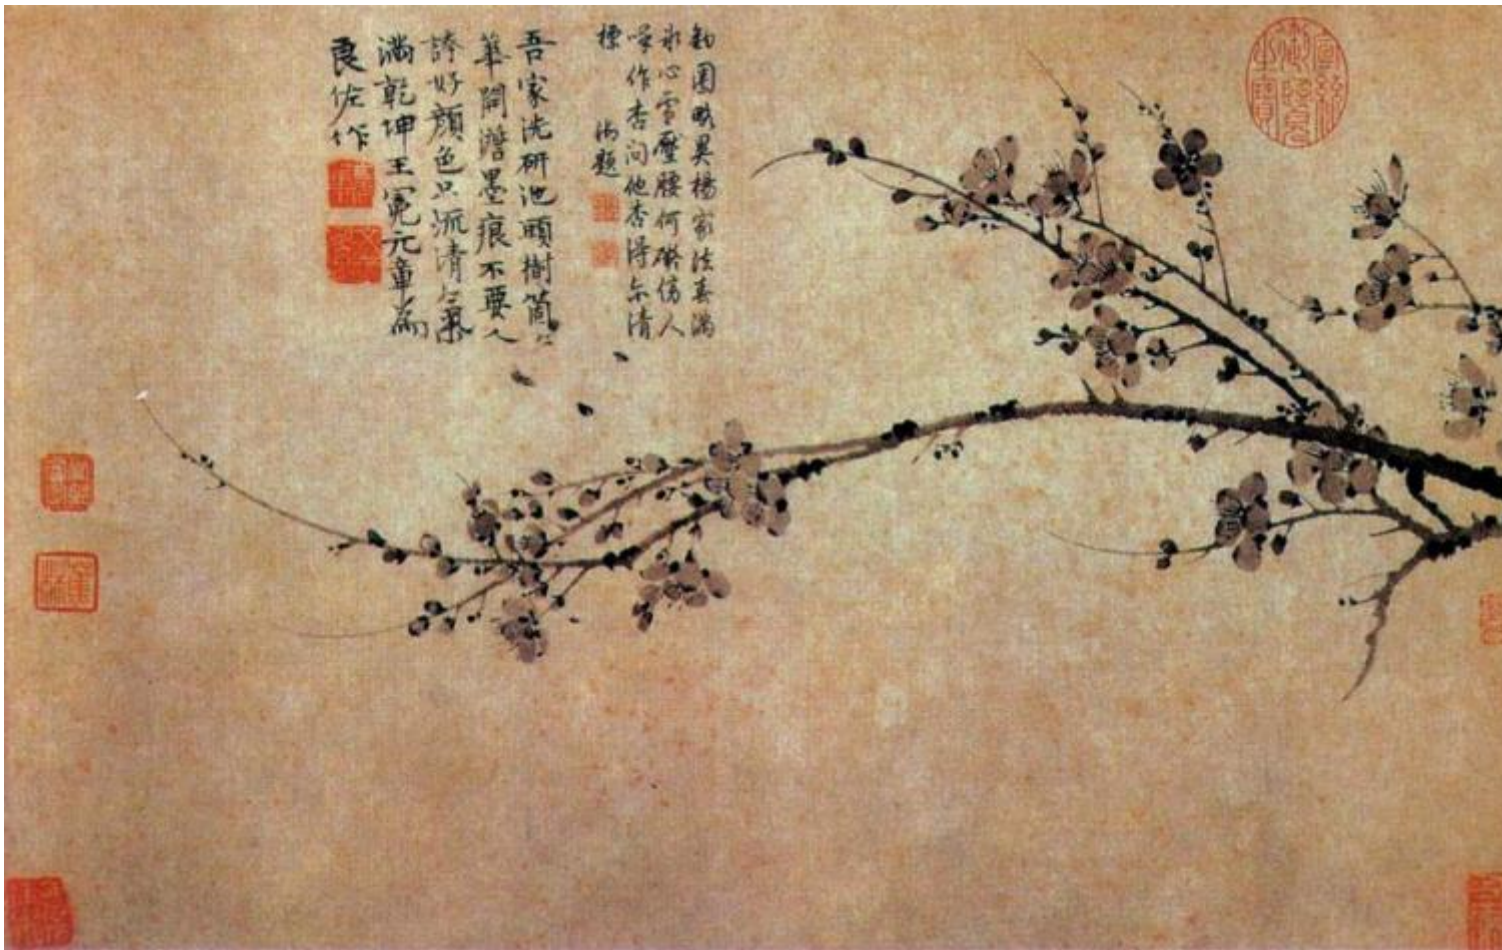 宣統御覽之寶
鈎圈略異楊家法春滿
冰心雪壓腰何礙傍人
喚作杏問他杏得尔清
標
御題
吾家洗研池頭樹箇〻
華開澹墨痕不要人
誇好顏色只流清氣
滿乾坤王冕元章為
良佐作